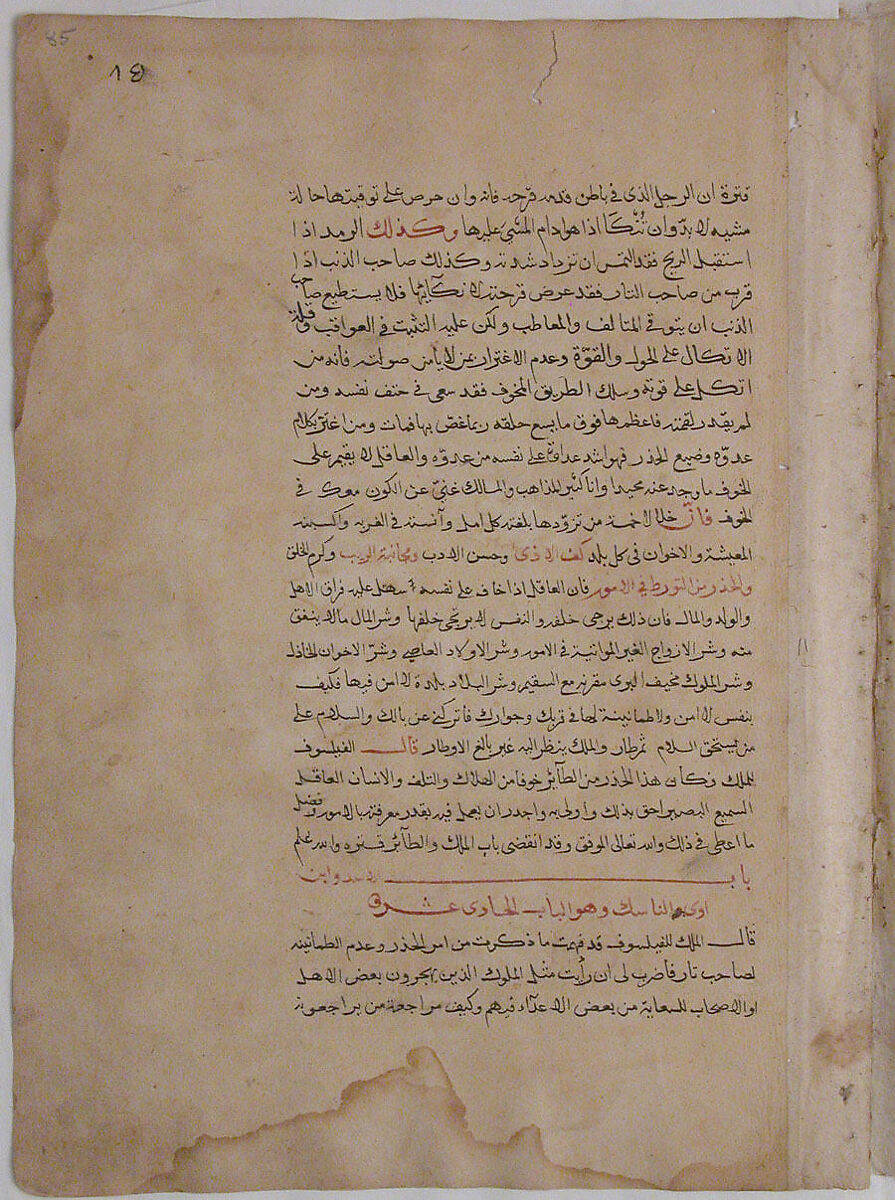 85
قتزة ان الرجل الذى فى باطن قدمه قرحه فانه وان حرص على توقيتها حالة
مشيه لا بدّ وان تُنكَأ اذا هو ادام المشى عليها وكذلك الرمد اذا
استقبل الريح فقد التمس ان تزداد شدته وكذلك صاحب الذنب اذا
قرب من صاحب الثار فقد عرض قرحته لانكآئها فلا يستطيع صاحب
الذنب ان يتوقى المتالف والمعاطب ولكن عليه التثبت فى العواقب وقلة
الاتكال على الحول والقوّة وعدم الاغترار بمن لا يامن صولته فانه من
اتكل على قوته وسلك الطريق المخوف فقد سعى فى حتف نفسه ومن
لم يقدر لقمته فاعظمها فوق ما يسع حلقه ربما غص بها فمات ومن اغتر بكلام
عدوّه وضيع الحذر فهو اشد عداوة على نفسه من عدوّه والعاقل لا يقيم على
الخوف ما وجد عنه محيدا وانا كثير المذاهب والمسالك غنىّ عن الكون معك فى
الخوف فانّ خلالا خمسة من تزوّدها بلغته كل امل وآنسته فى الغربه واكسبته
المعيشة والاخوان فى كل بلد كف الاذى وحسن الادب ومجانبة الريب وكرم الخلق
والحذر من التورط فى الامور فان العاقل اذا خاف على نفسه سهل عليه فراق الاهل
والولد والمال فان ذلك يرجى خلفه والنفس لا يرتجى خلفها وشر المال ما لا ينفق
منه وشر الازواج الغير المواتية فى الامور وشر الاولاد العاصى وشرّ الاخوان الخاذل
وشر الملوك مخيف البرى مقربه مع السقيم وشر البلاد بلدة لا امن فيها فكيف
بنفس لا امن ولا طمانينة لها فى قربك وجوارك فأتركنى عن بالك والسلام على
من يستحق السلام ثم طار والملك ينظر اليه غير بالغ الاوطار قال الفيلسوف
للملك فكان هذا الحذر من الطآئر خوفا من الهلاك والتلف والانسان العاقل
السميع البصير احق بذلك واولى به واجدر ان يعمل فيه بقدر معرفته بالامور وفضل
ما اعطى فى ذلك والله تعالى الموفق وقد انقضى باب الملك والطآئر قتزه والله اعلم
باب الاسد وابن
اوى الناسك وهو الباب الحادى عشر
قال الملك للفيلسوف قد فهمت ما ذكرت من امر الحذر وعدم الطمانينه
لصاحب ثار فأضرب لى ان رأيت مثل الملوك الذين يهجرون بعض الاهل
او الاصحاب للسعاية من بعض الاعدآء فيهم وكيف مراجعة من يراجعونه